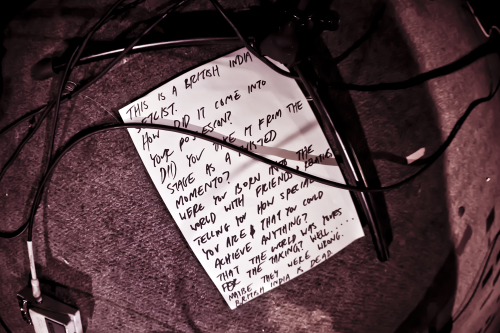 THIS IS A BRITISH INDIA
SETLIST.
HOW DID IT COME INTO
YOUR POSSESSION?
DID YOU TAKE IT FROM THE
STAGE AS A TWISTED
MOMENTO?
WERE YOU BORN INTO THE
WORLD WITH FRIENDS
TELLING YOU HOW SPECIAL
YOU ARE & THAT YOU COULD
ACHIEVE ANYTHING?
THE WORLD WAS YOURS
THAT
FOR THE TAKING? WELL.....
MAIBE THEY WERE WRONG.
BRITISH INDIA IS DEAD